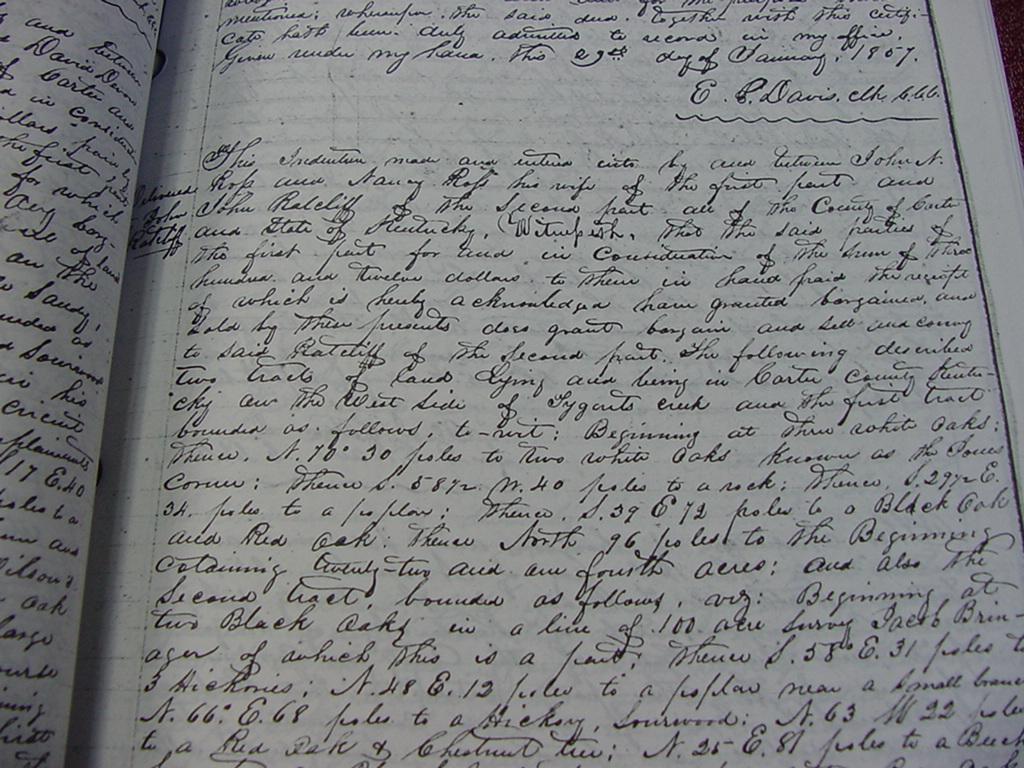 mentioned; whereupon the said deed together with this certifi-
cate hath been duly admitted to record in my office.
Given under my hand this 29th day of January, 1857.
E. P. Davis, Clk. C.C.C.
This Indenture made and entered into by and between John N.
Ross and Nancy Ross his wife of the first part and
John Ratcliff of the Second part all of the County of Carter
and State of Kentucky, Witnesseth, that the said parties of
the first part for and in Consideration of the sum of three
hundred and twelve dollars to them in hand paid the receipt
of which is hereby acknowledged have granted bargained, and
Sold by these presents does grant bargain and sell and convey
to said Ratcliff of the Second part. The following described
two tracts of land lying and being in Carter County Kentu-
cky on the West Side of Tygarts creek and the first tract
bounded as follows, to-wit: Beginning at three white oaks;
thence, N. 70° 30 poles to two white oaks known as the Jones
Corner; thence S. 58½ W. 40 poles to a rock; thence, S. 29½ E.
34. poles to a poplar; thence, S. 39 E 72 poles to a Black Oak
and Red Oak: thence North 96 poles to the Beginning
Cotaining twenty-two and one fourth acres; and also the
Second tract, bounded as follows, viz: Beginning at
two Black oaks in a line of 100 acre survey Jacob Brin-
ager of which this is a part; thence S. 58° E. 31 poles to
3 Hickories; N. 48 E. 12 poles to a poplar near a small branch
N. 66° E. 68 poles to a Hickory, Sourwood; N. 63 W 22 poles
to a Red Oak & Chestnut tree; N. 25 E. 81 poles to a Beech
Delivered
John
Ratcliff
and between
David Davis
of Carter and
in Consid
dollars paid
the first part
for which
bar-
of land
on the
Sandy,
as
Sourwood
his
17 E. 40
poles to a
and
Wilson's
oak
large